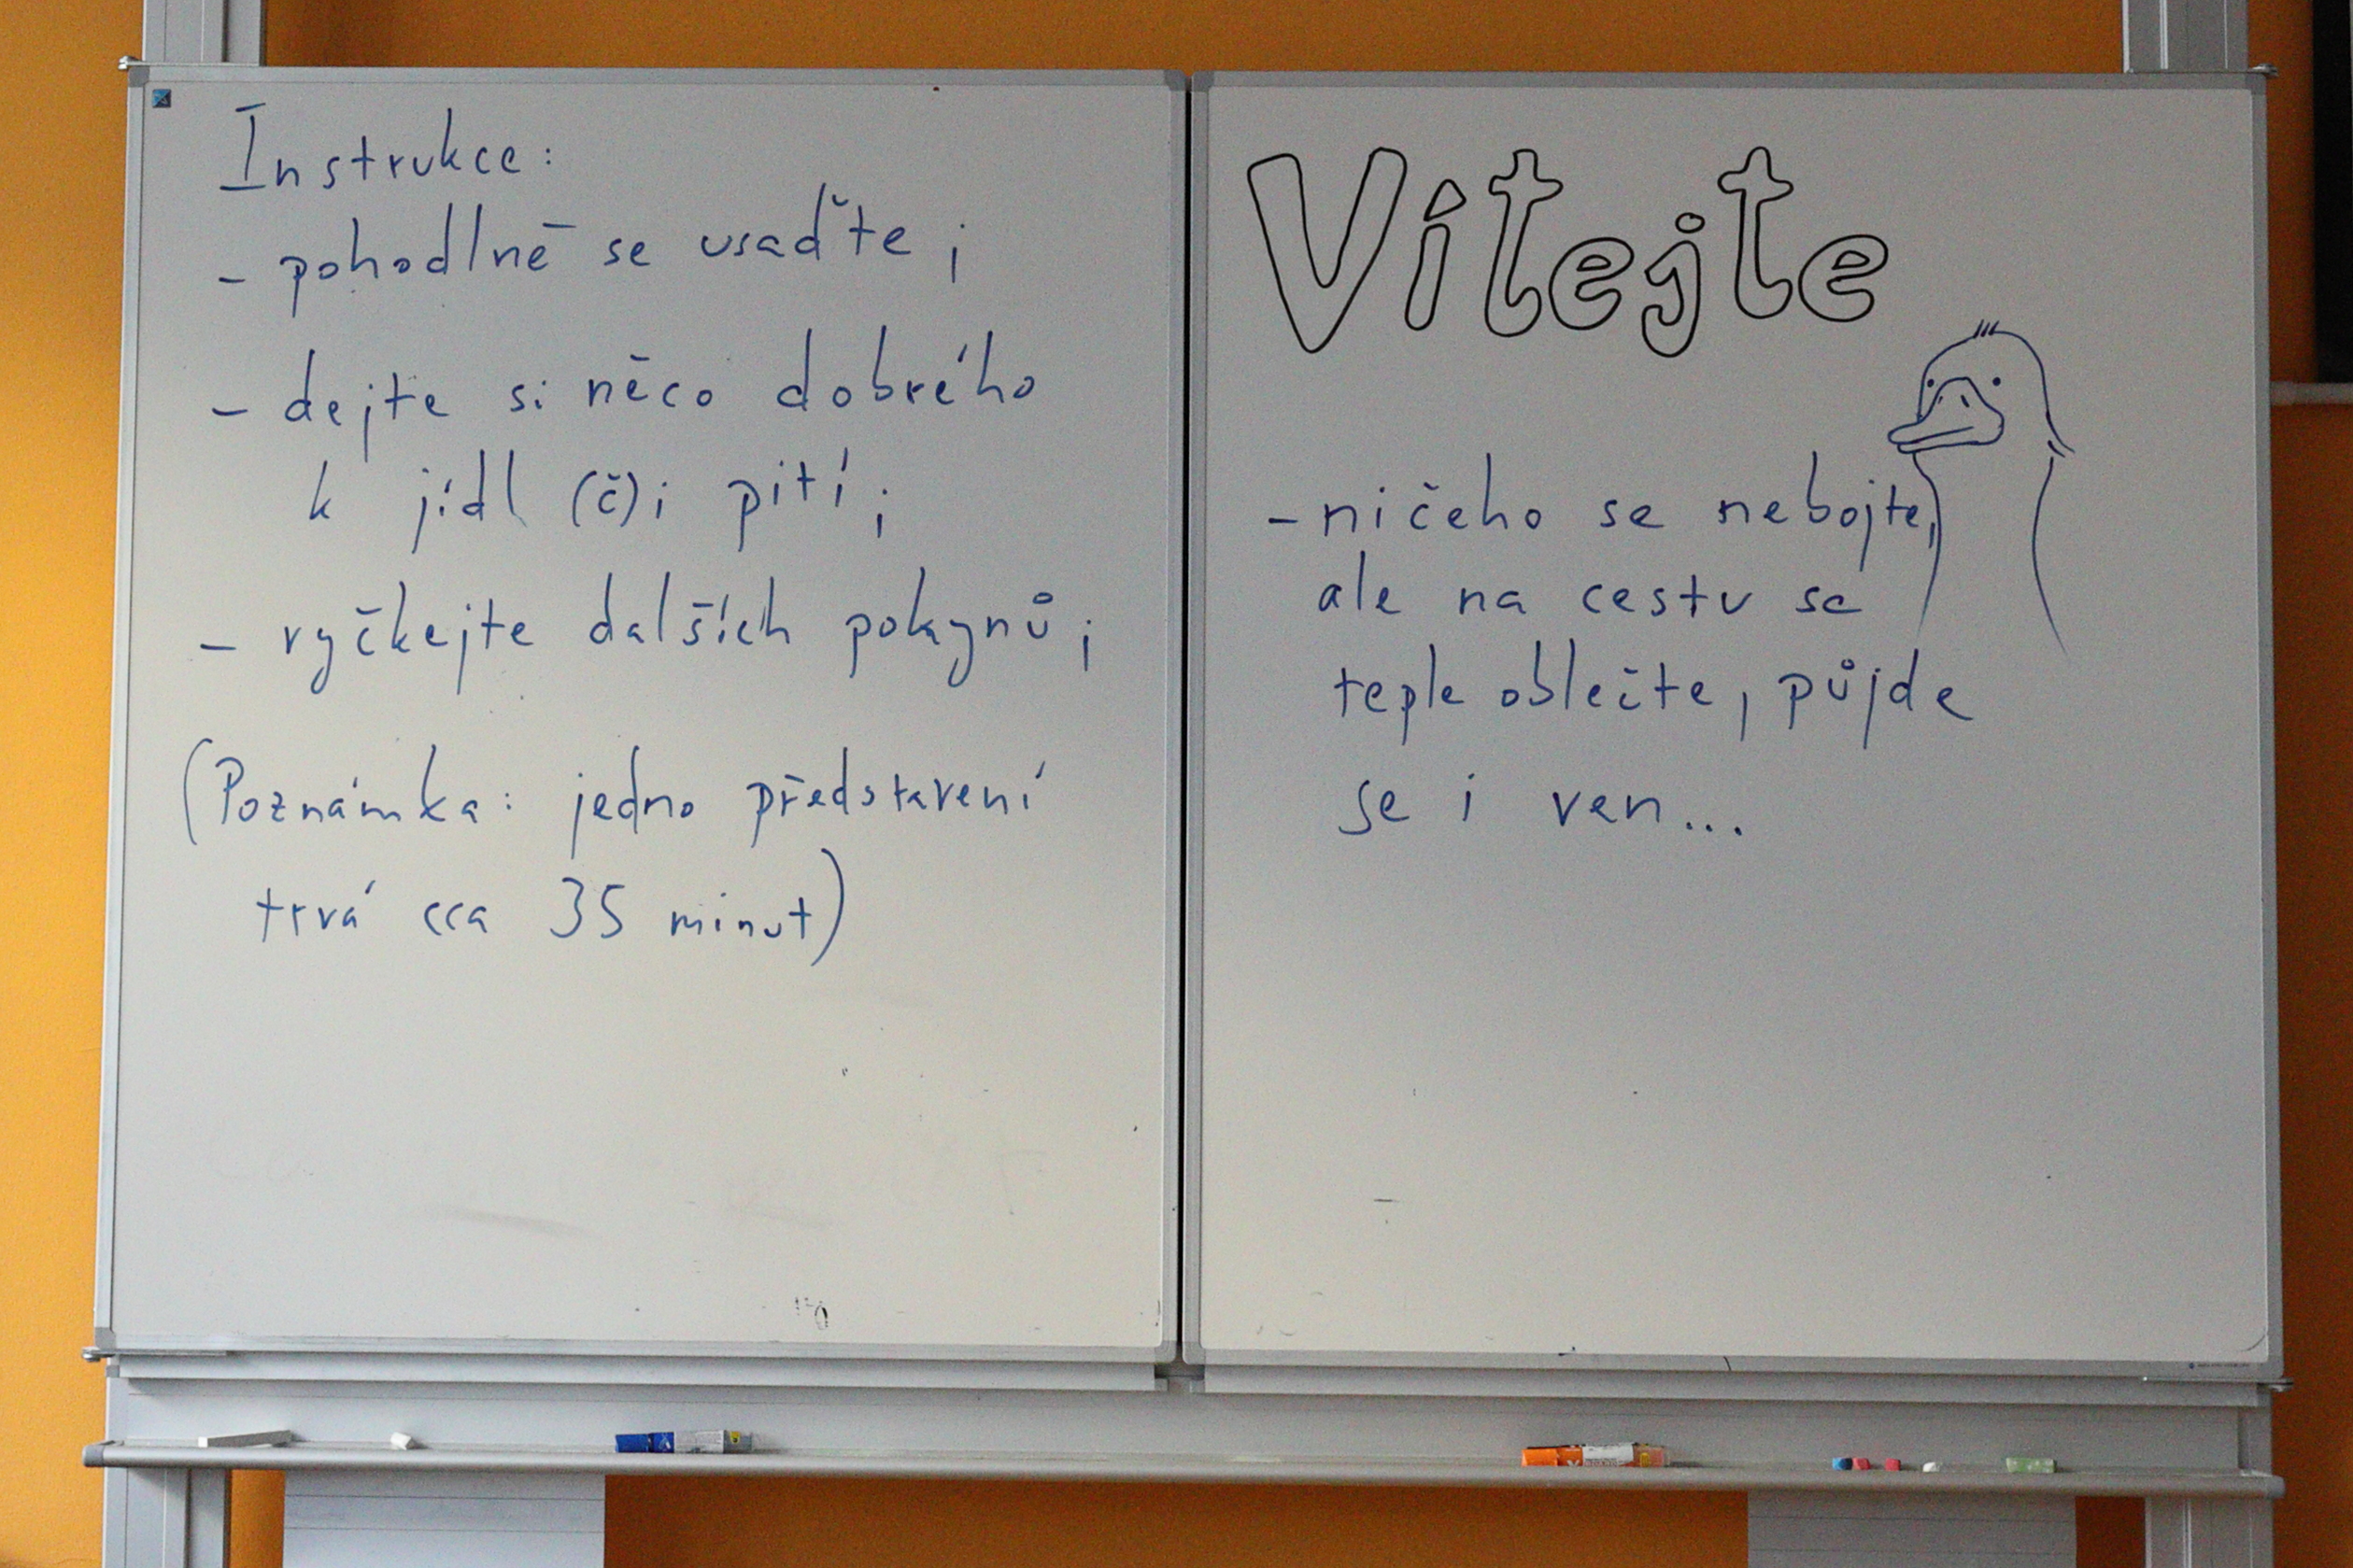 Instrukce:
- pohodlně se usaďte;
- dejte si něco dobrého
k jídl (č)i pití;
- vyčkejte dalších pokynů;
(Poznámka: jedno představení
trvá cca 35 minut)
Vítejte
- ničeho se nebojte,
ale na cestu se
teple oblečte, půjde
se i ven...